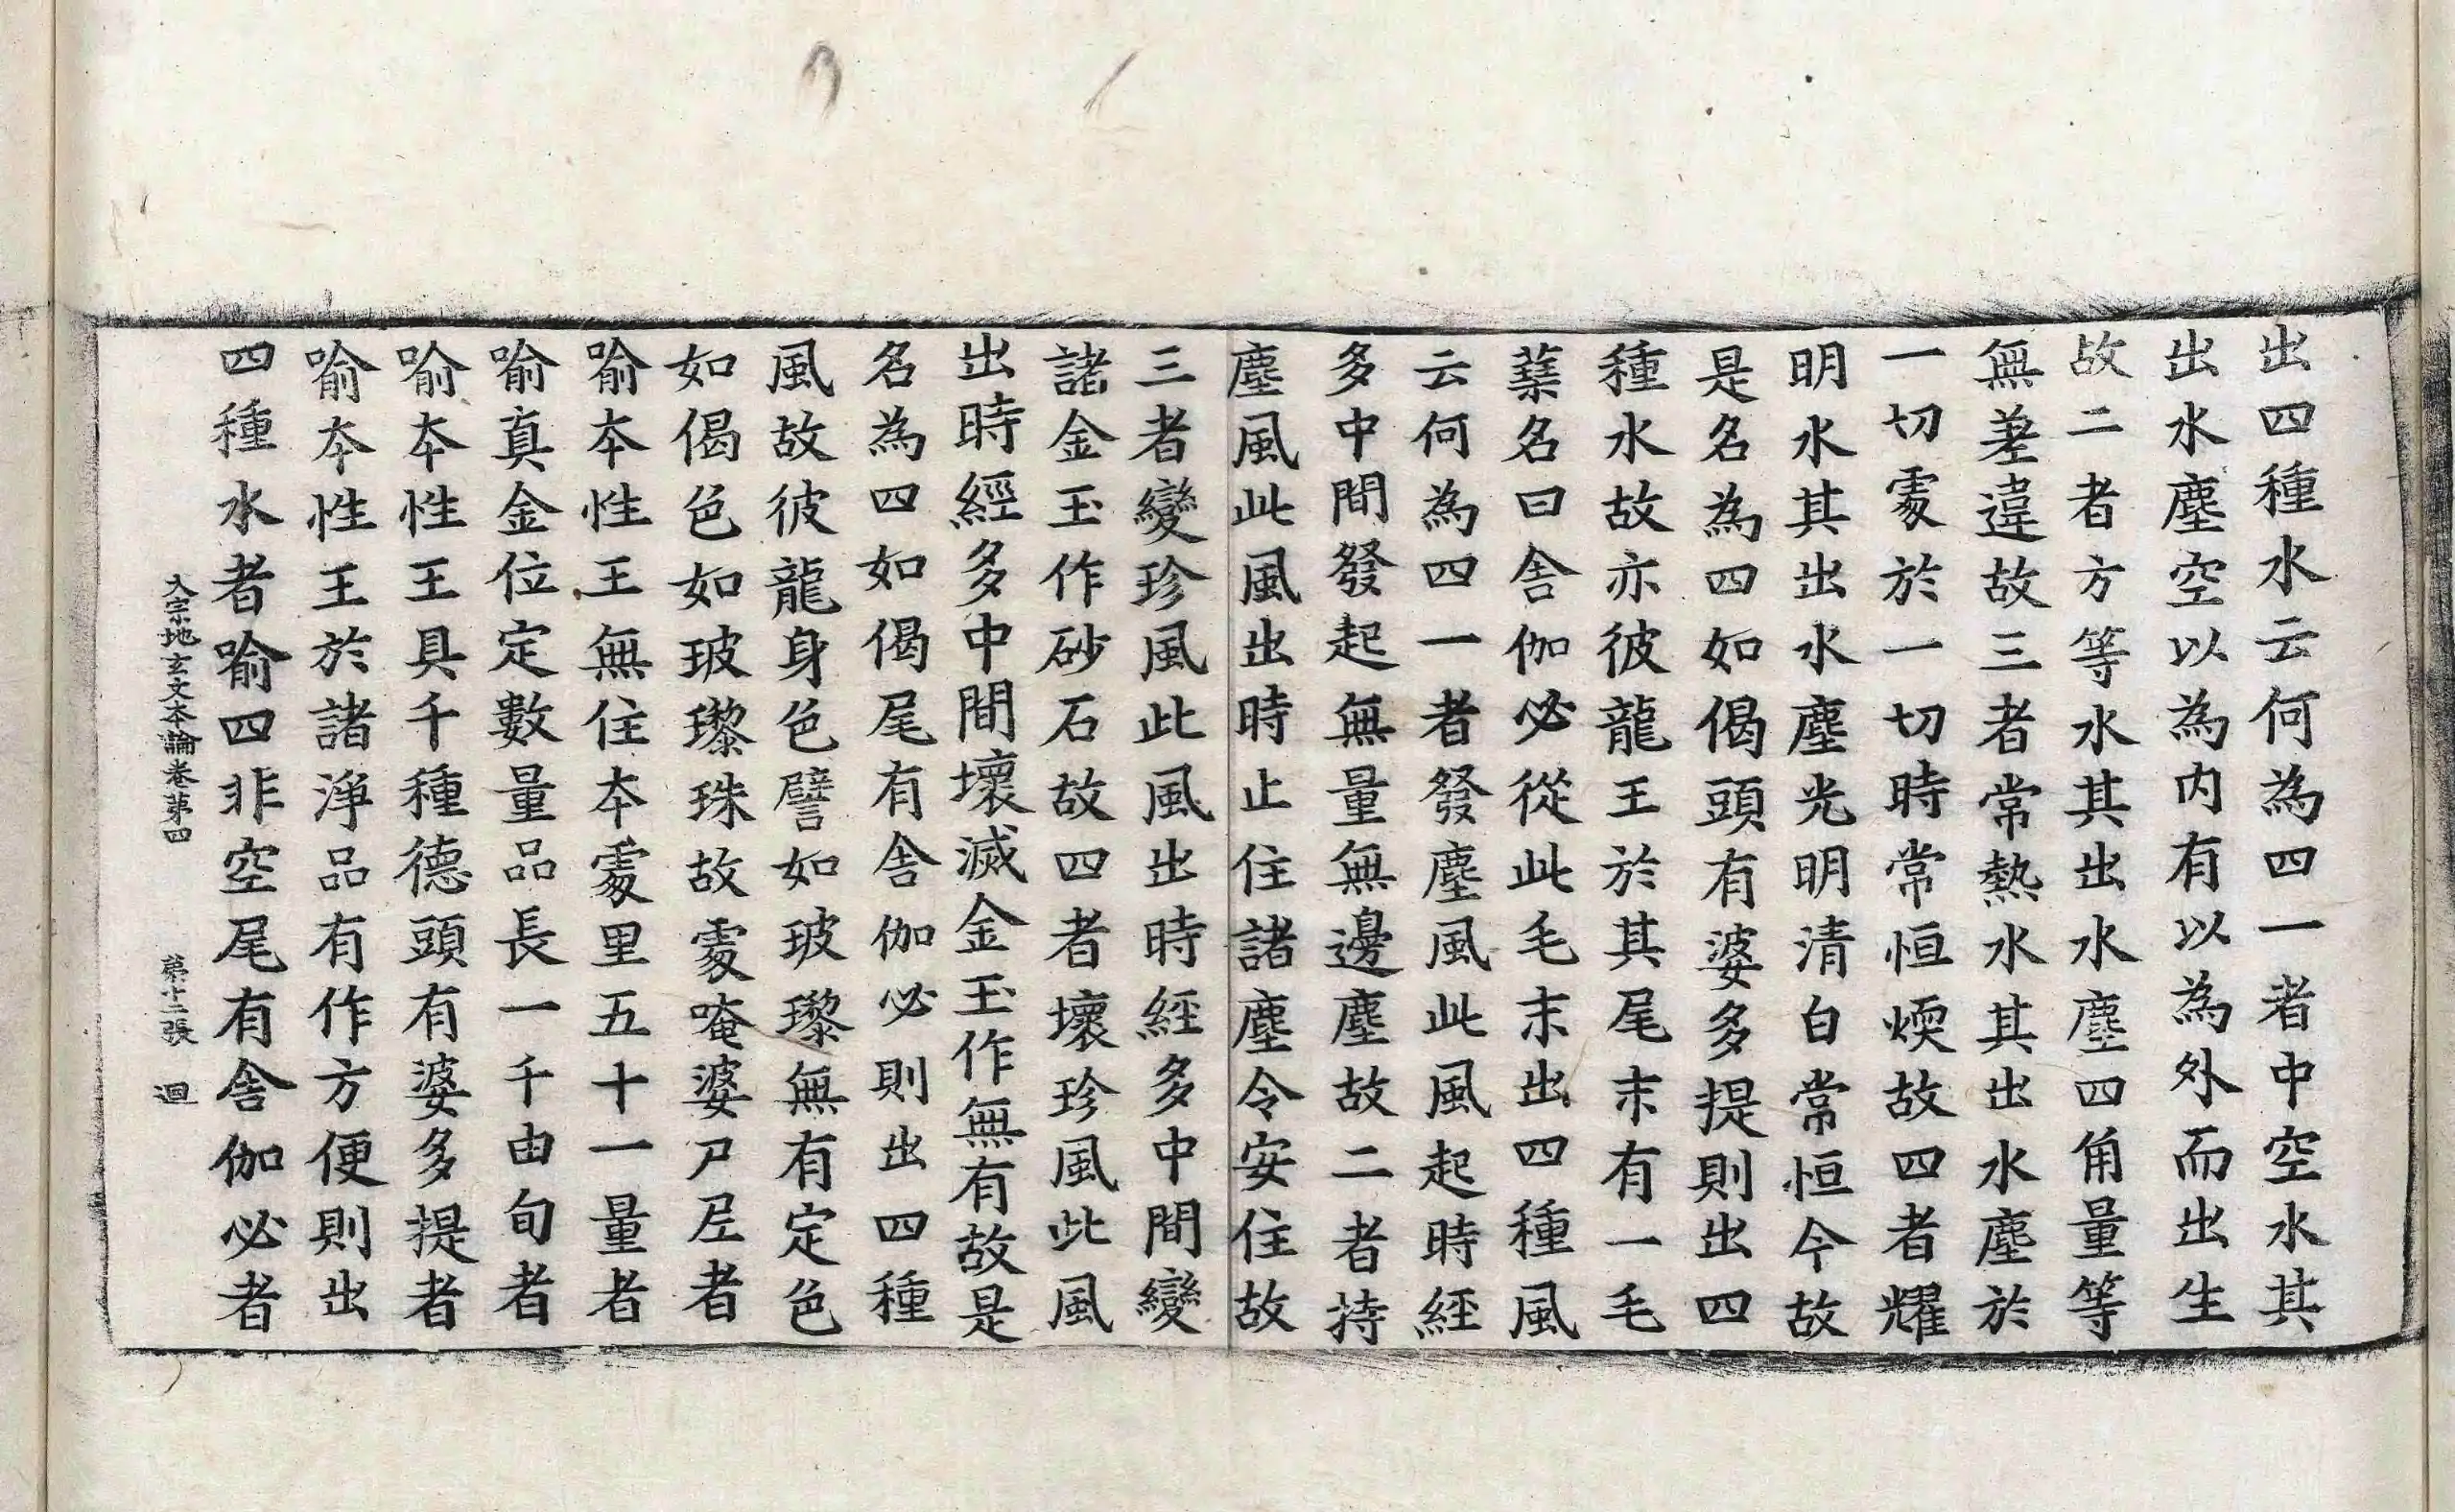 出四種水云何為四一者中空水其
出水塵空以為内有以為外而出生
故二者方等水其出水塵四角量等
無差違故三者常熱水其出水塵於
一切處於一切時常恒煗故四者耀
明水其出水塵光明清白常恒今故
是名為四如偈頭有婆多提則出四
種水故亦彼龍王於其尾末有一毛
蘂名曰舍伽必從此毛末出四種風
云何為四一者發塵風此風起時經
多中間發起無量無邊塵故二者持
塵風此風出時止住諸塵令安住故
三者變珍風此風出時經多中間變
諸金玉作砂石故四者壞珍風此風
出時經多中間壞滅金玉作無有故是
名為四如偈尾有舍伽必則出四種
風故彼龍身色譬如玻瓈無有定色
如偈色如玻瓈珠故處唵婆尸尼者
喻本性王無住本處里五十一量者
喻真金位定數量品長一千由旬者
喻本性王具千種德頭有婆多提者
喻本性王於諸淨品有作方便則出
四種水者喻四非空尾有舍伽必者
大宗地玄文本論卷第四 第十二張 迴